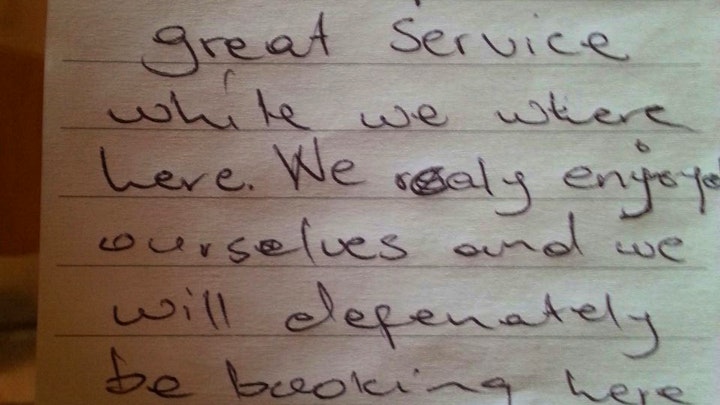 great service
while we where
here. We realy enjoyed
ourselves and we
will defenately
be booking here